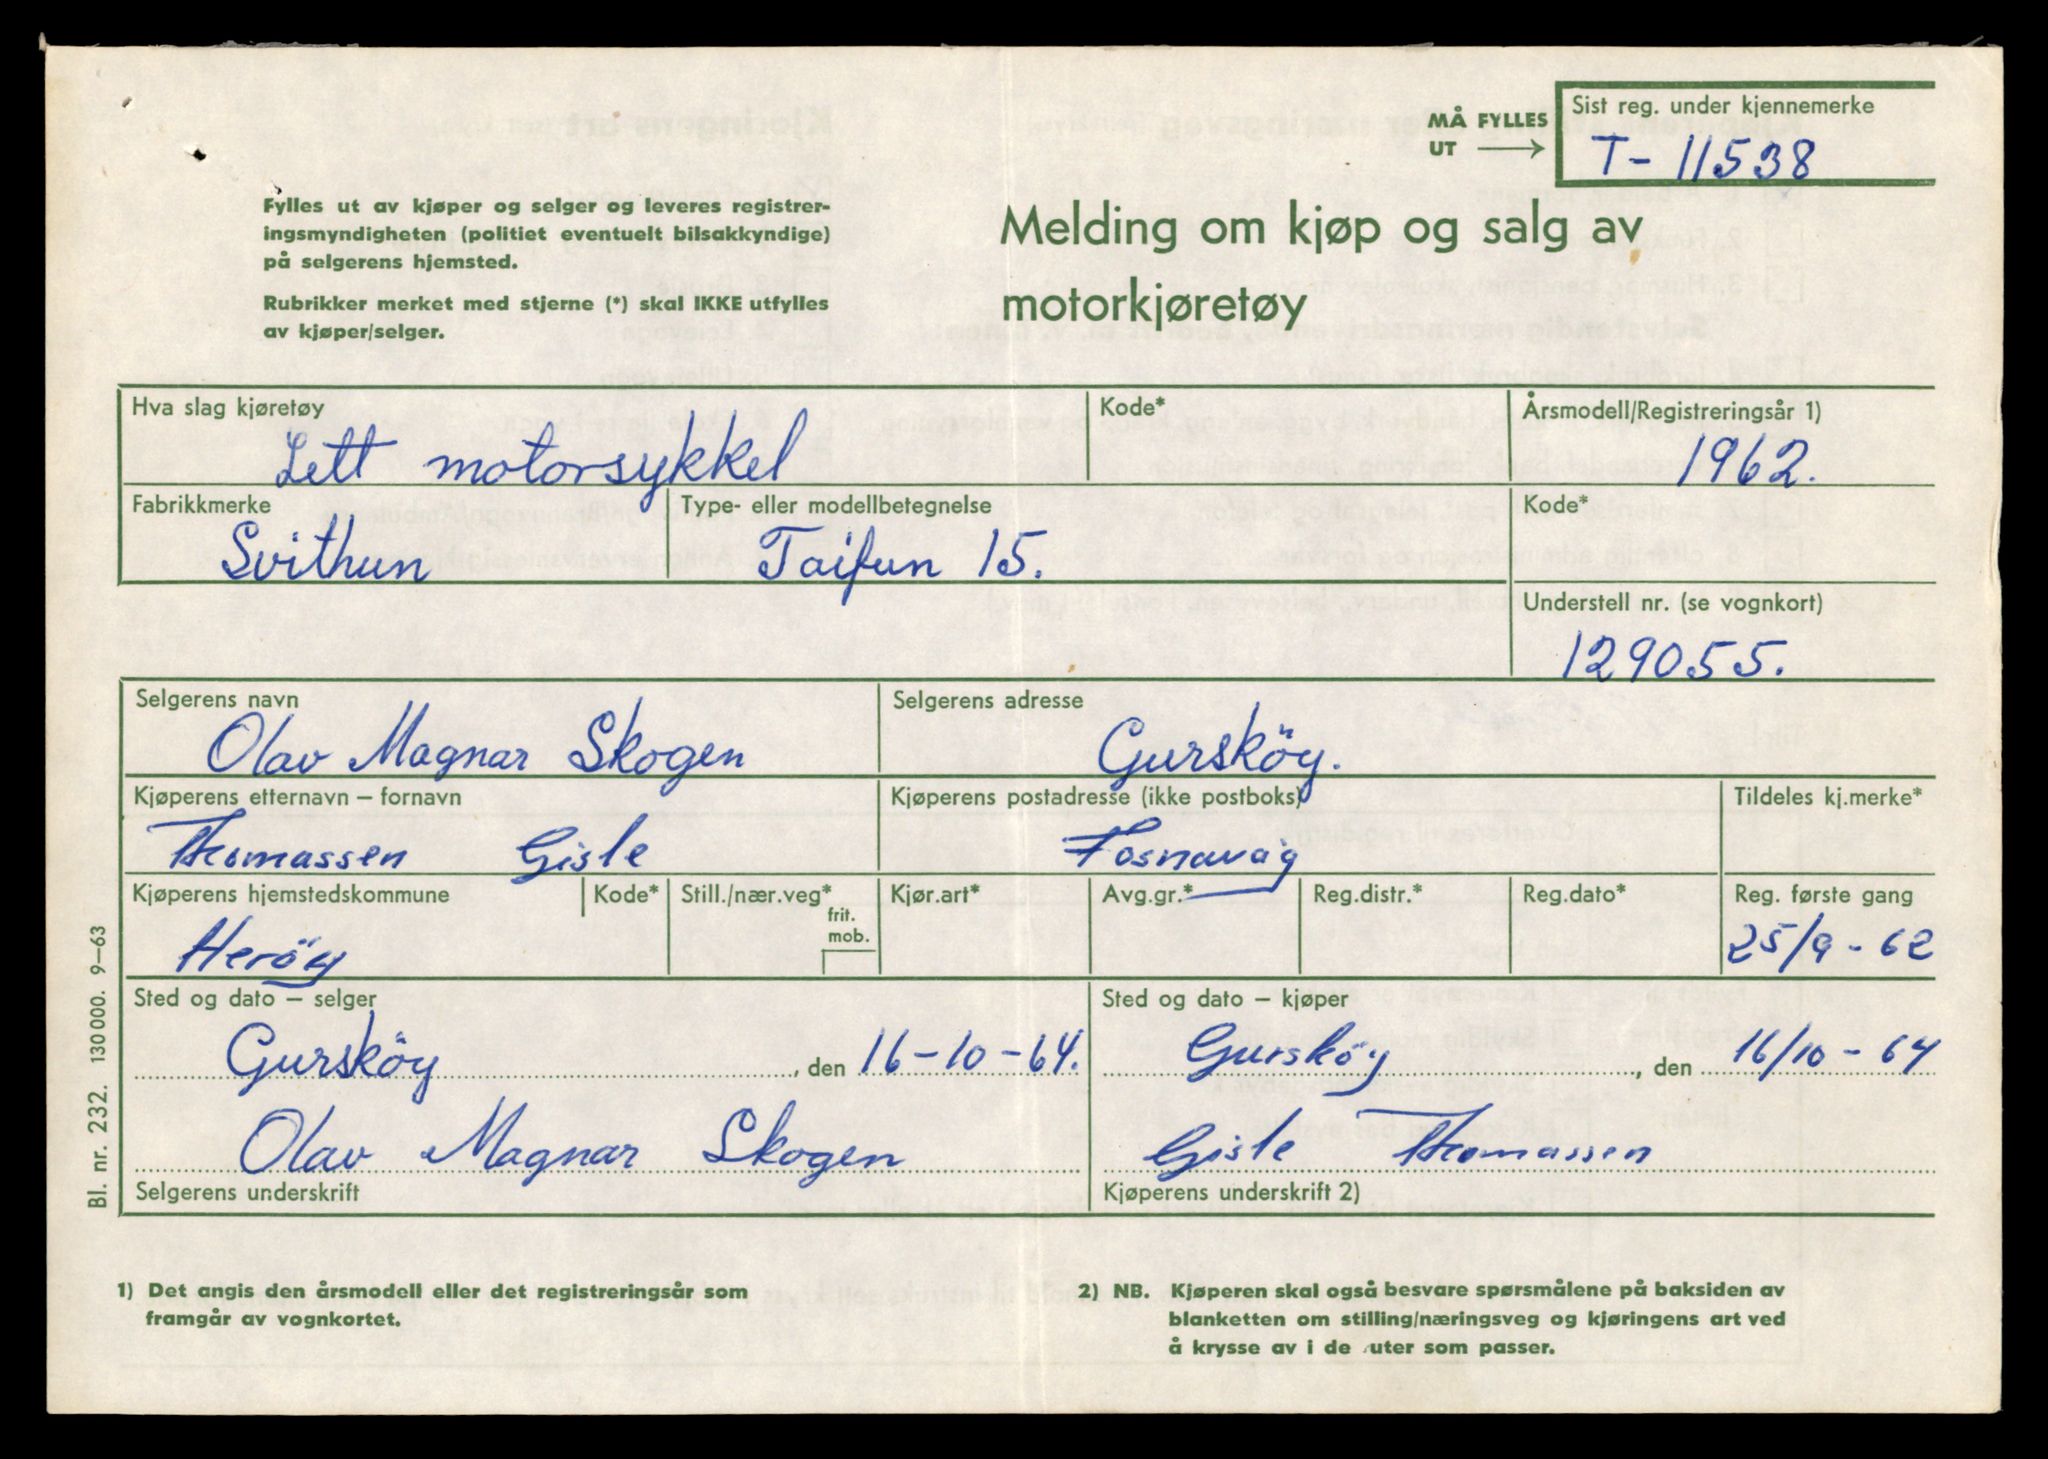 MÅ FYLLES UT → Sist reg. under kjennemerke
T- 11538
Fylles ut av kjøper og selger og leveres registrer-
ingsmyndigheten (politiet eventuelt bilsakkyndige)
på selgerens hjemsted.
Rubrikker merket med stjerne (*) skal IKKE utfylles
av kjøper/selger.
Melding om kjøp og salg av
motorkjøretøy
Hva slag kjøretøy Kode* Årsmodell/Registreringsår 1)
Lett motorsykkel 1962.
Fabrikkmerke Type- eller modellbetegnelse Kode*
Svithun Taifun 15.
Understell nr. (se vognkort)
129055.
Selgerens navn Selgerens adresse
Olav Magnar Skogen Gursköy.
Kjøperens etternavn – fornavn Kjøperens postadresse (ikke postboks) Tildeles kj.merke*
Thomassen Gisle Fosnavåg
Kjøperens hjemstedskommune Kode* Still./nær.veg* frit. mob. Kjør.art* Avg.gr.* Reg.distr.* Reg.dato* Reg. første gang
Heröy 25/9 - 62
Sted og dato – selger Sted og dato – kjøper
Gursköy, den 16-10-64. Gursköy, den 16/10-64
Olav Magnar Skogen Gisle Thomassen
Selgerens underskrift Kjøperens underskrift 2)
Bl. nr. 232. 130000. 9–63
1) Det angis den årsmodell eller det registreringsår som
framgår av vognkortet.
2) NB. Kjøperen skal også besvare spørsmålene på baksiden av
blanketten om stilling/næringsveg og kjøringens art ved
å krysse av i de uter som passer.